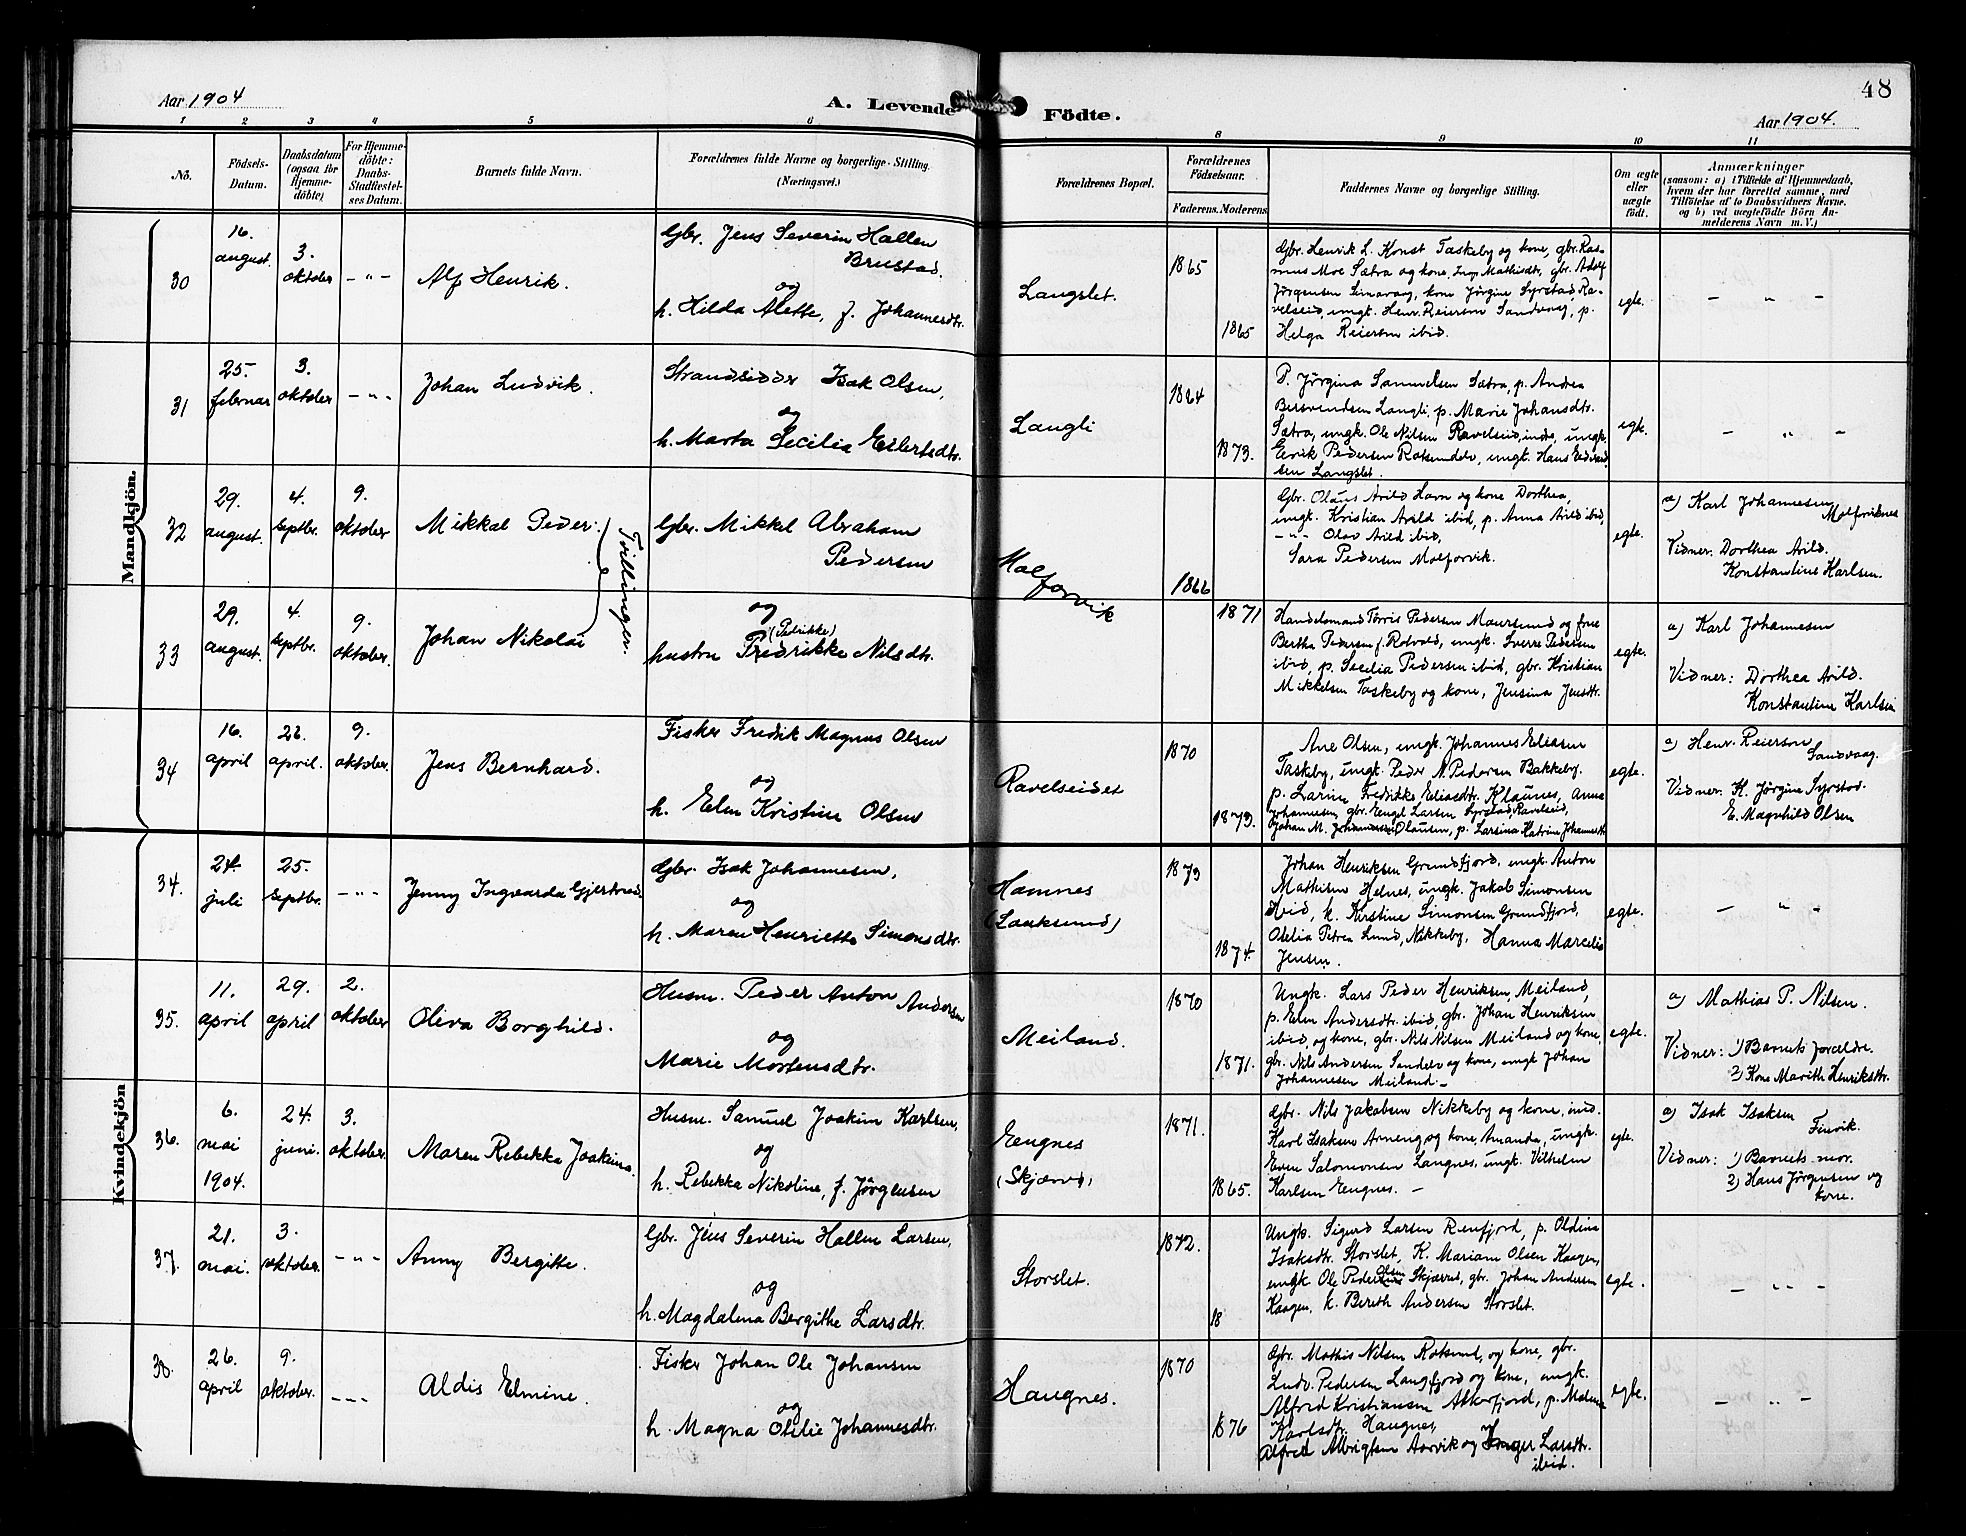 Aar 1904
A. Levende Födte.
48
Aar 1904.
1 2 3 4 5 6 8 9 10 11
No.
Födsels-
Datum.
Daabsdatum
(ogsaa for
Hjemme-
döbte)
For Hjemme-
döbte:
Daabs-
Stadfæstel-
ses Datum.
Barnets fulde Navn.
Forældrenes fulde Navne og borgerlige Stilling.
(Næringsvei.)
Forældrenes Bopæl.
Forældrenes
Födselsaar.
Faderens. Moderens.
Faddernes Navne og borgerlige Stilling.
Om ægte
eller
uægte
født.
Anmærkninger
(saasom: a) i Tilfælde af Hjemmedaab,
hvem der har forrettet samme, med
Tilföielse af to Daabsvidners Navne.
og b) ved uægtefödte Börn An-
melderens Navn m. V.)
Mandkjön.
30
16.
august.
3.
oktober
- " -
Alf Henrik.
Gbr. Jens Severin Hallen
Brustad.
og
h. Hilda Alette, f. Johannesdtr.
Langslet.
1865
1865
Gbr. Henrik L. Konst Taskeby og kone, gbr. Ras-
mus Moe Sætra og kone, Mathisdtr, gbr. Adolf
Jørgensen Simavaag, kone Jørgine Syrstad, Ra-
velseid, ungk. Henr. Reiersen Sandvaag, p.
Helga Reiersen ibid.
egte.
- " -
31
25.
februar
3.
oktober
- " -
Johan Ludvik.
Strandsidder Isak Olsen,
og
h. Marta Secilia Eilertsdtr.
Langli
1864
1873.
P. Jørgina Samuelsen Sætra, p. Andrea
Bersvendsen Langli, p. Marie Johansdtr.
Sætra, ungk. Ole Nilsen Ravelseid, inds, ungk.
Eirik Pedersen Rotsundelv, ungk. Hans Edvard-
sen Langslet.
egte.
- " -
32
29.
august.
4.
septbr.
9.
oktober
Mikkal Peder.
Tvillinger.
Gbr. Mikkel Abraham
Pedersen
Molforvik
1866
Gbr. Olaus Arild Havn og kone Dorthea,
ungk. Kristian Arild ibid, p. Anna Arild ibid,
- " - Olav Arild ibid,
Sara Pedersen Molforvik.
egte.
a) Karl Johannesen
Molforviknes
Vidner: Dorthea Arild.
Konstantine Karlsen.
33
29.
august.
4.
septbr.
9.
oktober.
Johan Nikolai
og
(Petrikke)
hustru Fredrikke Nilsdtr.
1871
Handelsmand Tørris Pedersen Maursund og frue
Bertha Pedersen f. Rotvold, ungk. Sverre Pedersen
ibid, p. Secilia Pedersen ibid, gbr. Kristian
Mikkelsen Taskeby og kone, Jensina Jensdtr.
egte.
a) Karl Johannesen
Vidner: Dorthea Arild.
Konstantine Karlsen
34
16.
april
22.
april.
9.
oktober.
Jens Bernhard.
Fisker Fredik Magnus Olsen
og
h. Elen Kristine Olsen
Ravelseidet
1870
1879.
Ane Olsen, ungk. Johannes Eliasen
Taskeby, ungk. Peder N. Pedersen Bakkeby.
p. Larine Fredrikke Eliasdtr. Klaunes, Anna
Johannesen, gbr. Engel Larsen Syrstad, Ravelseid,
Johan M. Johannesen Olausen, p. Larsina Katrine Johannesdtr
egte.
a) Henr. Reiersen
Sandvaag.
Vidner: K. Jørgine Syrstad.
E. Magnhild Olsen
Kvindekjön
34.
24.
juli
25.
septbr.
- " -
Jenny Ingvarda Gjertrud
Gbr. Isak Johannesen,
og
h. Maren Henriette Simonsdtr.
Hamnes
(Lauksund)
1879
1874.
Johan Henriksen Grundfjord, ungk. Anton
Mathisen Helnes, ungk. Jakob Simonsen
ibid, k. Kirstine Simonsen Grundfjord,
Otelia Petrea Lund, Nikkeby, Hanna Marcelie
Jensen.
egte.
- " -
35.
11.
april
29.
april
2.
oktober
Oliva Borghild.
Husm. Peder Anton Andersen
og
Marie Mortensdtr.
Meiland.
1870
1871.
Ungk. Lars Peder Henriksen, Meiland,
p. Elen Andersdtr. ibid, gbr. Johan Henriksen
ibid, og kone, gbr. Nils Nilsen Meiland og kone,
gbr. Nils Andersen Sandelv og kone, ungk Johan
Johannesen Meiland.-
egte.
a) Mathias P. Nilsen.
Vidner: 1) Barnets forældre.
2) Kone Marith Henriksdtr.
36.
6.
mai
1904.
24.
juni.
3.
oktober.
Maren Rebekka Joakima.
Husm. Samuel Joakim Karlsen,
og
h. Rebekka Nikoline, f. Jörgensen
Engnes
(Skjærvø)
1871.
1865.
Gbr. Nils Jakobsen Nikkeby og kone, ind.
Karl Isaksen Arneng og kone, Amanda, ungk.
Even Salomonsen Langnes, ungk. Vilhelm
Karlsen Engnes. -
egte.
a) Isak Isaksen
Finvik.
Vidner: 1) Barnets mor.
2) Hans Jörgensen og
kone.
37.
21.
mai.
3.
oktober.
- " -
Anny Bergitte.
Gbr. Jens Severin Hallen Larsen,
og
h. Magdalena Bergithe Larsdtr.
Storslet.
1872.
18
Ungk. Sigurd Larsen Reinfjord, p. Oldina
Isaksdtr. Storslet, K. Mariam Olsen Kaagen,
ungk. Ole Pedersen Olsen Skjærvø, gbr. Johan Andersen
Kaagen, k. Bereth Andersen Storslet.
egte.
- " -
38.
26.
april
9.
oktober.
- " -
Aldis Elmine.
Fisker Johan Ole Johansen
og
h. Magna Otilie Johannesdtr.
Haugnes.
1870
1876
Gbr. Mathis Nilsen Rotsund, og kone, gbr.
Ludv. Pedersen Langfjord og kone, ungk.
Alfred Kristiansen Alterfjord, p.
Karlsdtr. Haugnes,
Alfred Albrigtsen Aarvik og Inger Larsdtr.
ibid.
egte.
- " -